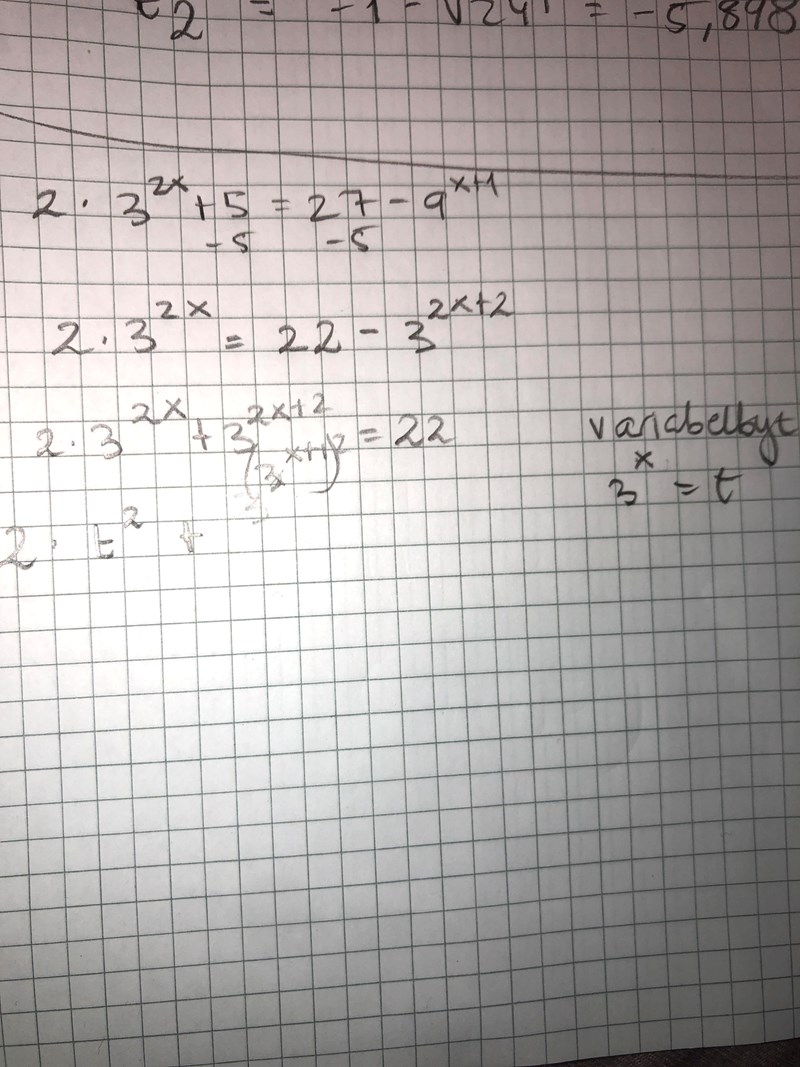 t₂ = -1 - √24 = -5,898
2 · 3^(2x) + 5 = 27 - 9^(x+1)
-5 -5
2 · 3^(2x) = 22 - 3^(2x+2)
2 · 3^(2x) + 3^(2x+2) = 22 variabelbyt
(3^(x+1))² 3^x = t
2 · t² +